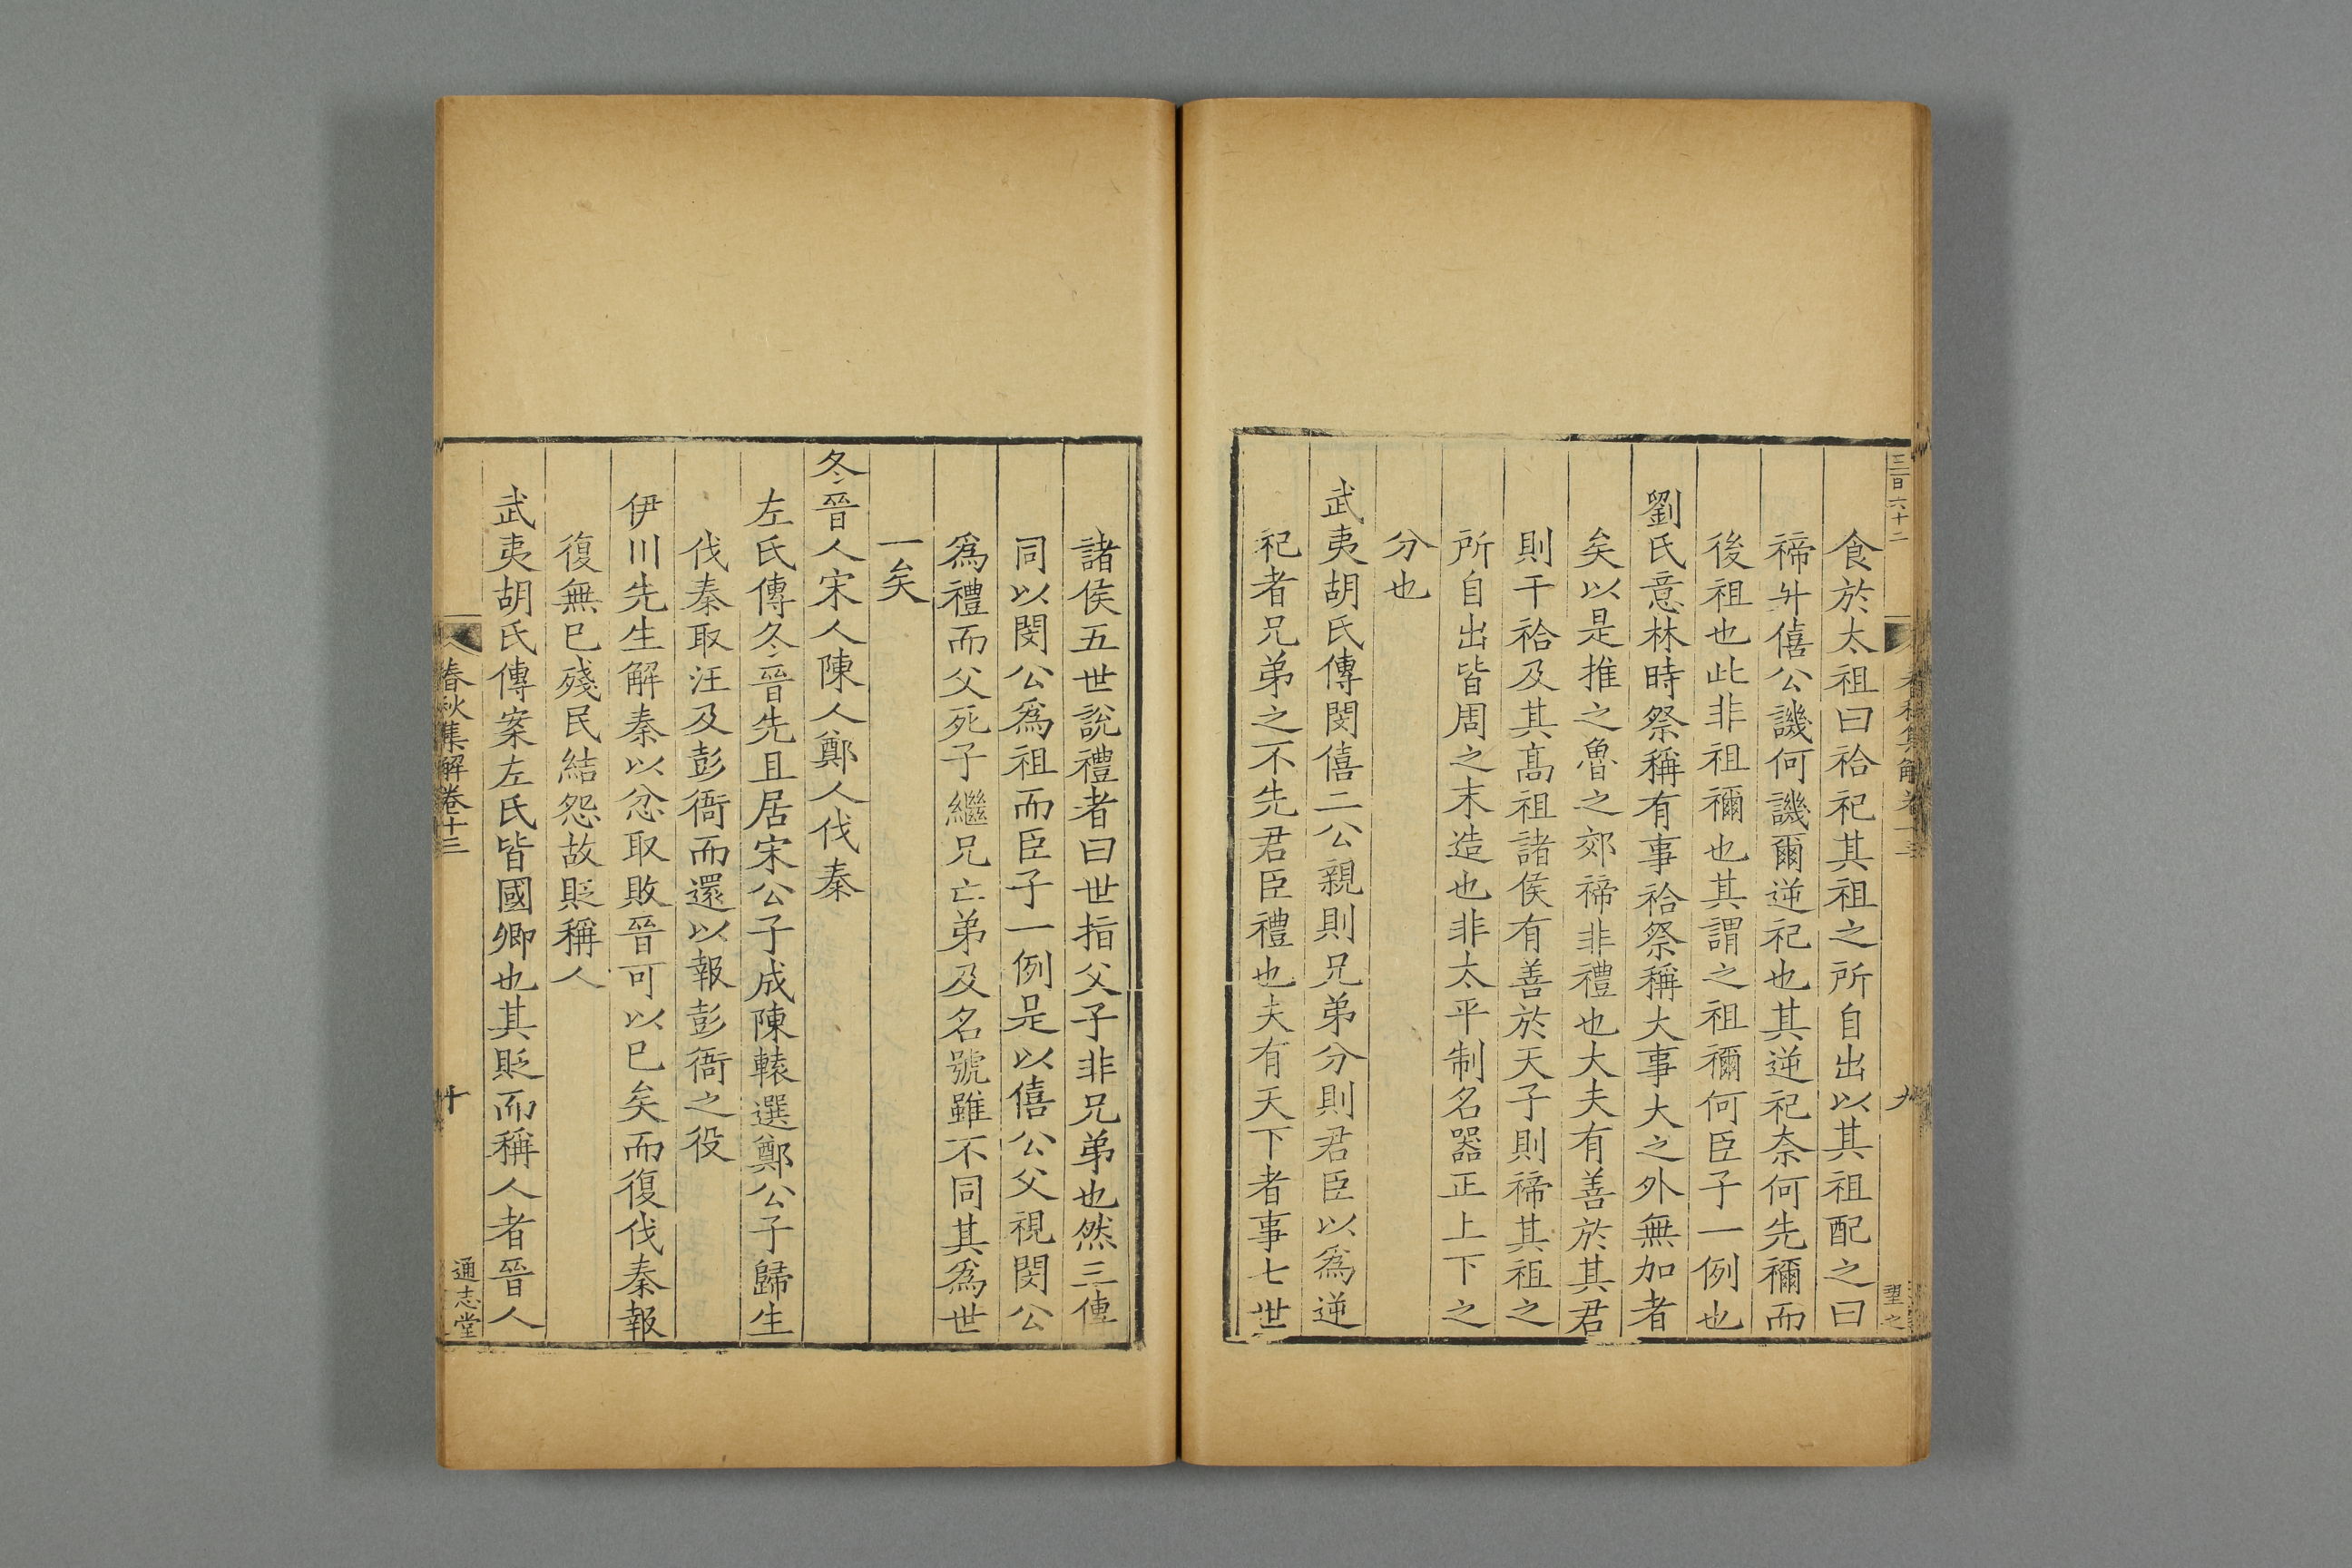 三百六十二
春秋集解卷十三
九
食於太祖曰祫祀其祖之所自出以其祖配之曰
禘升僖公譏何譏爾逆祀也其逆祀奈何先禰而
後祖也此非祖禰也其謂之祖禰何臣子一例也
劉氏意林時祭稱有事祫祭稱大事大之外無加者
矣以是推之魯之郊禘非禮也大夫有善於其君
則干祫及其髙祖諸侯有善於天子則禘其祖之
所自出皆周之末造也非太平制名器正上下之
分也
武夷胡氏傳閔僖二公親則兄弟分則君臣以爲逆
祀者兄弟之不先君臣禮也夫有天下者事七世
諸侯五世說禮者曰世指父子非兄弟也然三傳
同以閔公爲祖而臣子一例是以僖公父視閔公
爲禮而父死子繼兄亡弟及名號雖不同其爲世
一矣
冬晉人宋人陳人鄭人伐秦
左氏傳冬晉先且居宋公子成陳轅選鄭公子歸生
伐秦取汪及彭衙而還以報彭衙之役
伊川先生解秦以忿取敗晉可以已矣而復伐秦報
復無已殘民結怨故貶稱人
武夷胡氏傳案左氏皆國卿也其貶而稱人者晉人
春秋集解卷十三
十
通志堂